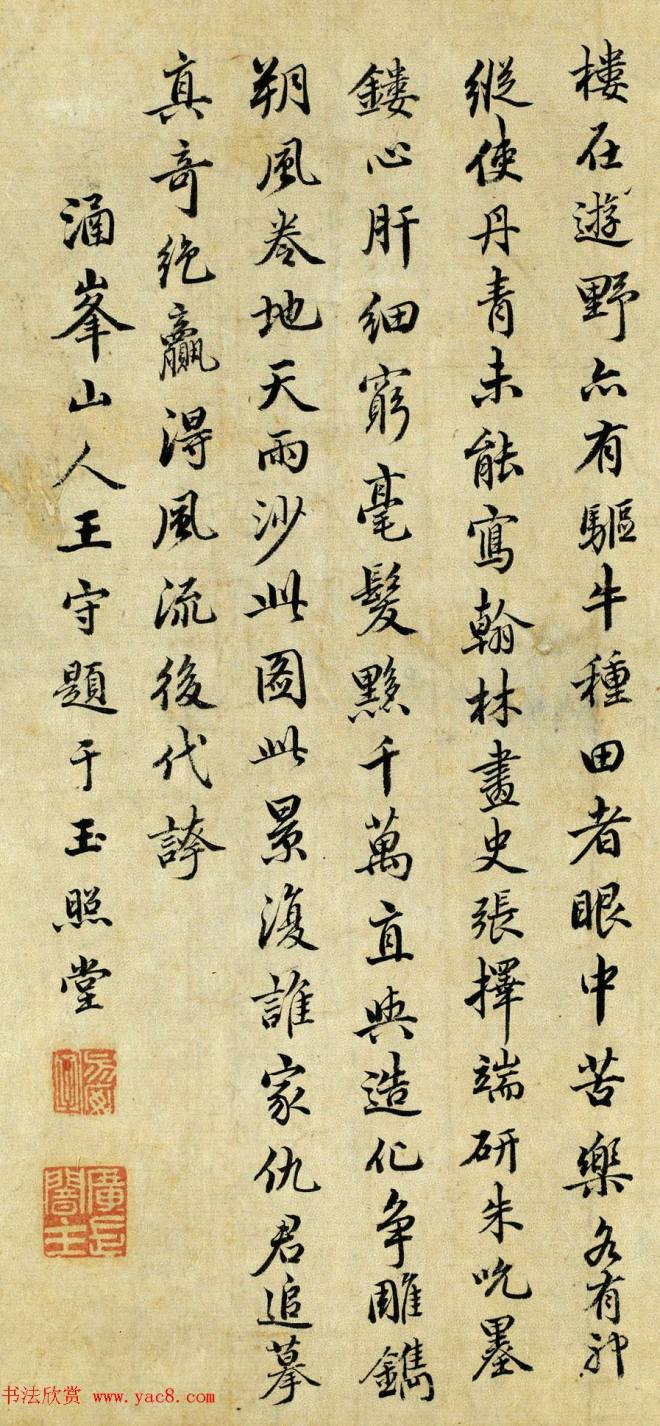 樓在遊野亦有驅牛種田者眼中苦樂各有神
縱使丹青未能寫翰林畫史張擇端研朱吮墨
鏤心肝細窮毫髮夥千萬直與造化爭雕鐫
朔風卷地天雨沙此圖此景復誰家仇君追摹
真奇絕贏得風流後代誇
涌峯山人王守題于玉照堂
书法欣赏 www.yac8.com